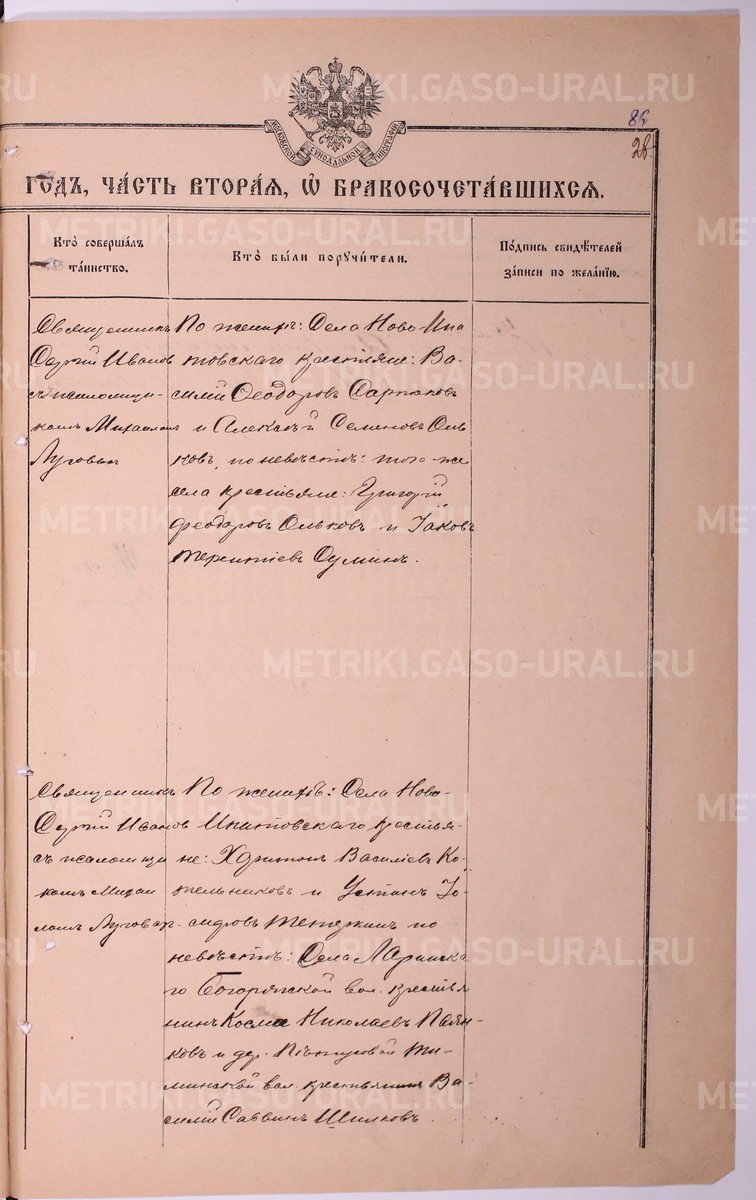 METRIKI.GASO-URAL.RU
МОСКОВСКОЙ СѴНОДАЛЬНОЙ ТИПОГРАФІИ
86
28.
ГОДЪ, ЧАСТЬ ВТОРАЯ, Ѡ БРАКОСОЧЕТАВШИХСЯ.
Кто совершалъ
таинство.
Кто были поручители.
Подпись свидѣтелей
записи по желанію.
Священникъ
Сергій Иванов
съ псаломщи-
комъ Михаилом
Луговых
По женихѣ: Села Ново Ипа
товскаго крестьяне: Ва-
силій Ѳеодоровъ
и Алексѣй Семеновъ Оль
ковъ, по невѣстѣ: того-же
села крестьяне: Григорій
Феодоровъ Ольковъ и Іаковъ
Терентіевъ Суминъ.
Священникъ
Сергій Иванов
съ псаломщи
комъ Михаи
ломъ Луговых.
По женихѣ: Села Ново-
Ипатовскаго крестья-
не: Харитонъ Василіевъ Ко-
тельниковъ и Устинъ Іо-
сифовъ по
невѣстѣ: Села
го Богорякской вол. крестья
нинъ Косма Николаевъ
ковъ и дер.
минской вол. крестьянинъ Ва-
силій Саввинъ Шилковъ.